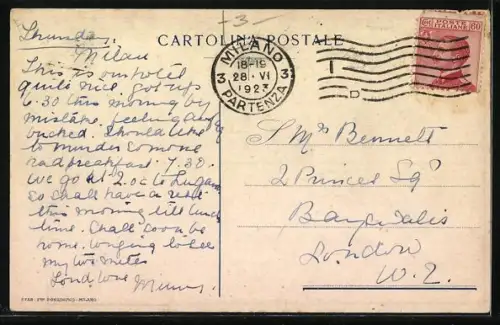 -3-
CARTOLINA POSTALE
Thursday
Milan
This is our hotel
quite nice. got up
6.30 this morning by
mistake. feeling
Should like
to murder someone
had breakfast. 7.30.
we go at 2.oc to Lugano
so shall have a rest
this morning till lunch
time. Shall soon be
home. longing to see
my two mites
Fond love
MILANO
18-19
28. VI
1923
PARTENZA
3 3
POSTE ITALIANE
60 60
Mrs Bennett
2 Princes Sqre
London
W. 2.